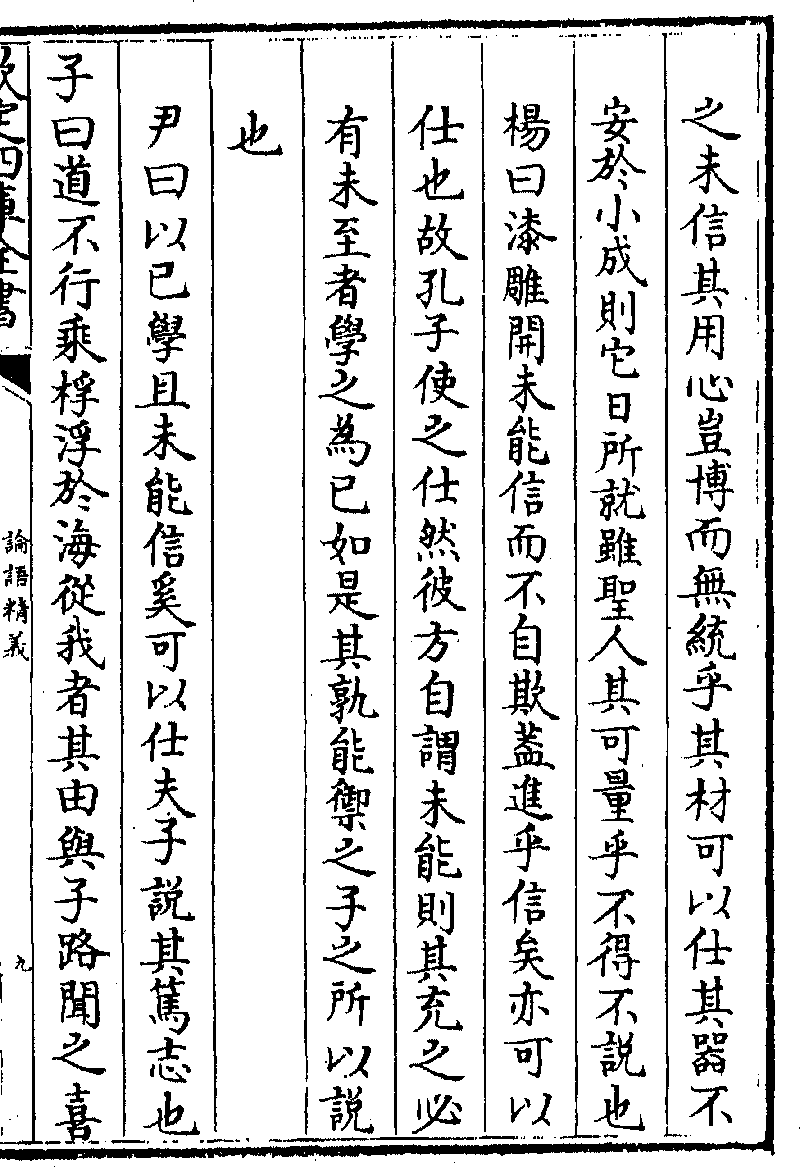 之未信其用心豈博而無統乎其材可以仕其器不
安於小成則它日所就雖聖人其可量乎不得不説也
楊曰漆雕開未能信而不自欺蓋進乎信矣亦可以
仕也故孔子使之仕然彼方自謂未能則其充之必
有未至者學之為已如是其孰能禦之子之所以説
也
尹曰以已學且未能信奚可以仕夫子説其篤志也
子曰道不行乘桴浮於海從我者其由與子路聞之喜
欽定四庫全書
論語精義
九